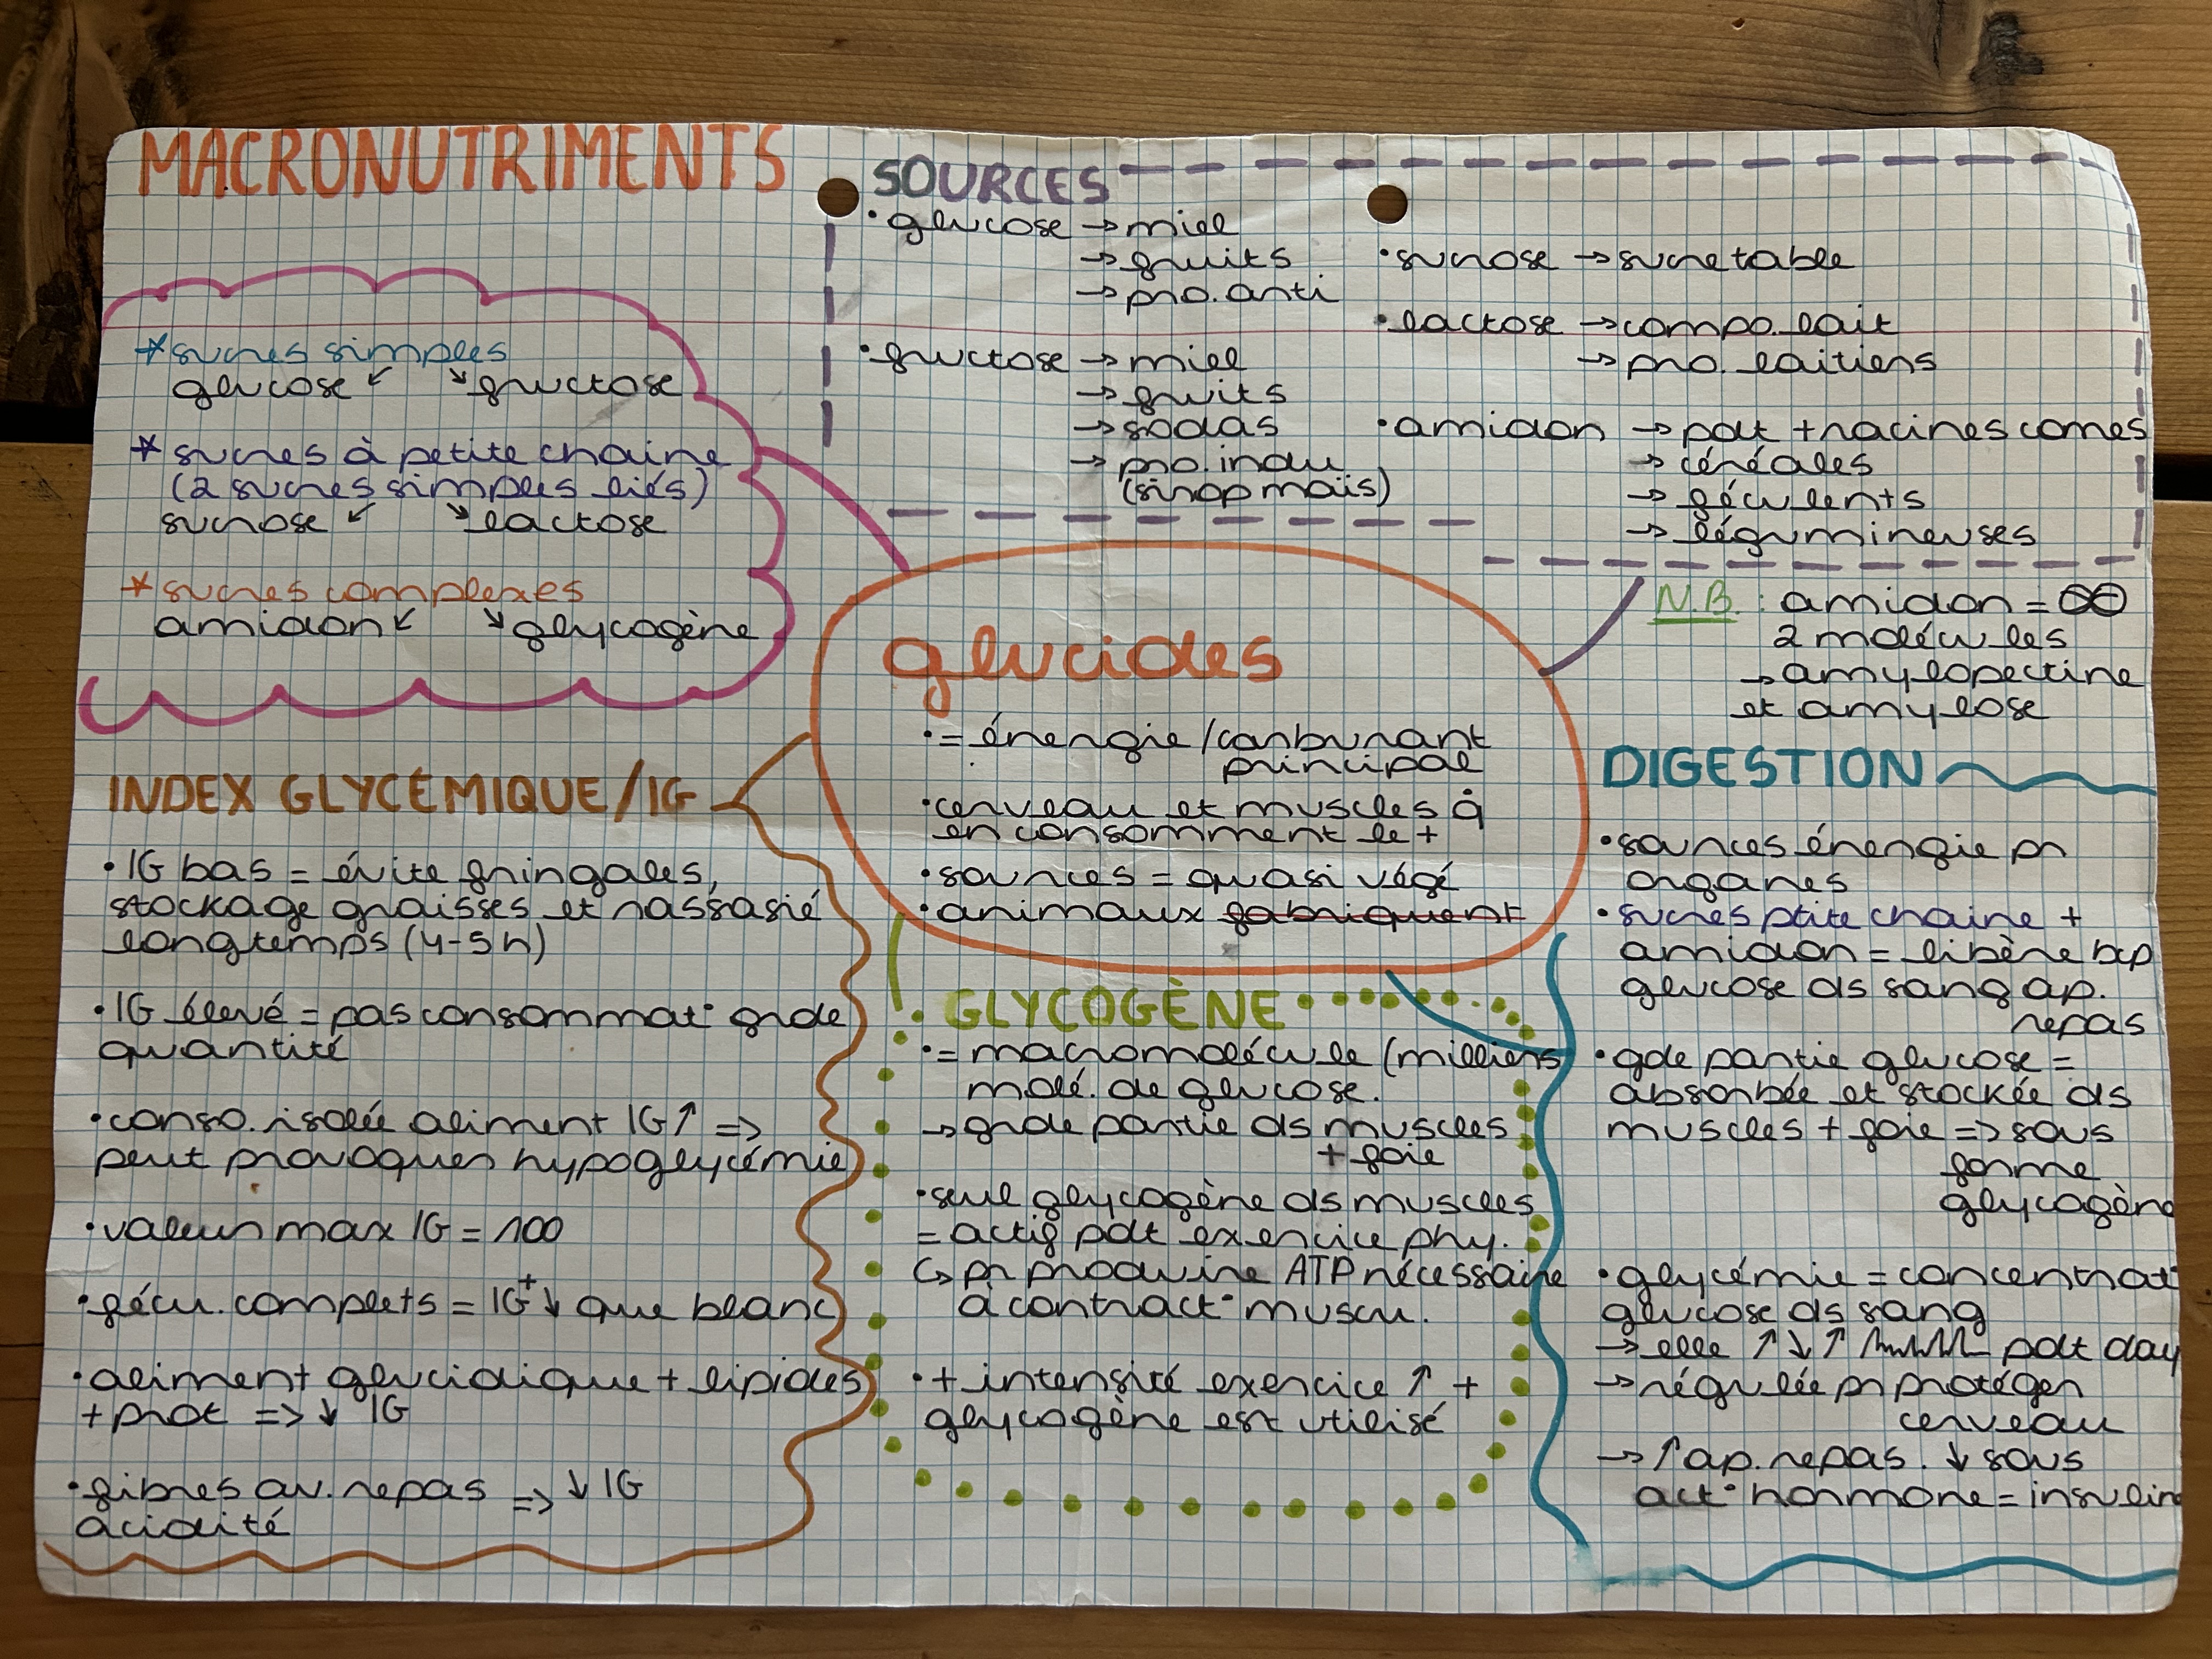 MACRONUTRIMENTS
* sucres simples
glucose ↙ ↘ fructose
* sucres à petite chaine
(2 sucres simples liés)
sucrose ↙ ↘ lactose
* sucres complexes
amidon ↙ ↘ glycogène
SOURCES
• glucose → miel
→ fruits
→ pro. anti
• fructose → miel
→ fruits
→ sodas
→ pro. indu
(sirop maïs)
• sucrose → sucre table
• lactose → compo. lait
→ pro. laitiens
• amidon → pdt + racines comes
→ céréales
→ féculents
→ légumineuses
N.B. : amidon = ∞
2 molécules
→ amylopectine
et amylose
glucides
• = énergie/carburant
principal
• cerveau et muscles
en consomment le +
• sources = quasi végé
• animaux fabriquent
INDEX GLYCÉMIQUE/IG
• IG bas = évite fringales,
stockage graisses et rassasié
longtemps (4-5h)
• IG élevé = pas consommat° grde
quantité
• conso. isolée aliment IG ↑ =>
peut provoquer hypoglycémie
• valeur max IG = 100
• fécu. complets = IG + ↓ que blanc
• aliment glucidique + lipides
+ prot => ↓ IG
• fibres av. repas => ↓ IG
acidité
GLYCOGÈNE
• = macromolécule (milliers
molé. de glucose.
→ grde partie ds muscles
+ foie
• seul glycogène ds muscles
= actif pdt exercice phy.
↳ pr produire ATP nécessaire
à contract° muscu.
• + intensité exercice ↑ +
glycogène est utilisé
DIGESTION
• sources énergie pr
organes
• sucres ptite chaine +
amidon = libère bcp
glucose ds sang ap.
repas
• gde partie glucose =
absorbée et stockée ds
muscles + foie => sous
forme
glycogène
• glycémie = concentrat°
glucose ds sang
→ elle ↑ ↓ ↑ pdt day
→ régulée pr protéger
cerveau
→ ↑ ap. repas. ↓ sous
act° hormone = insulin